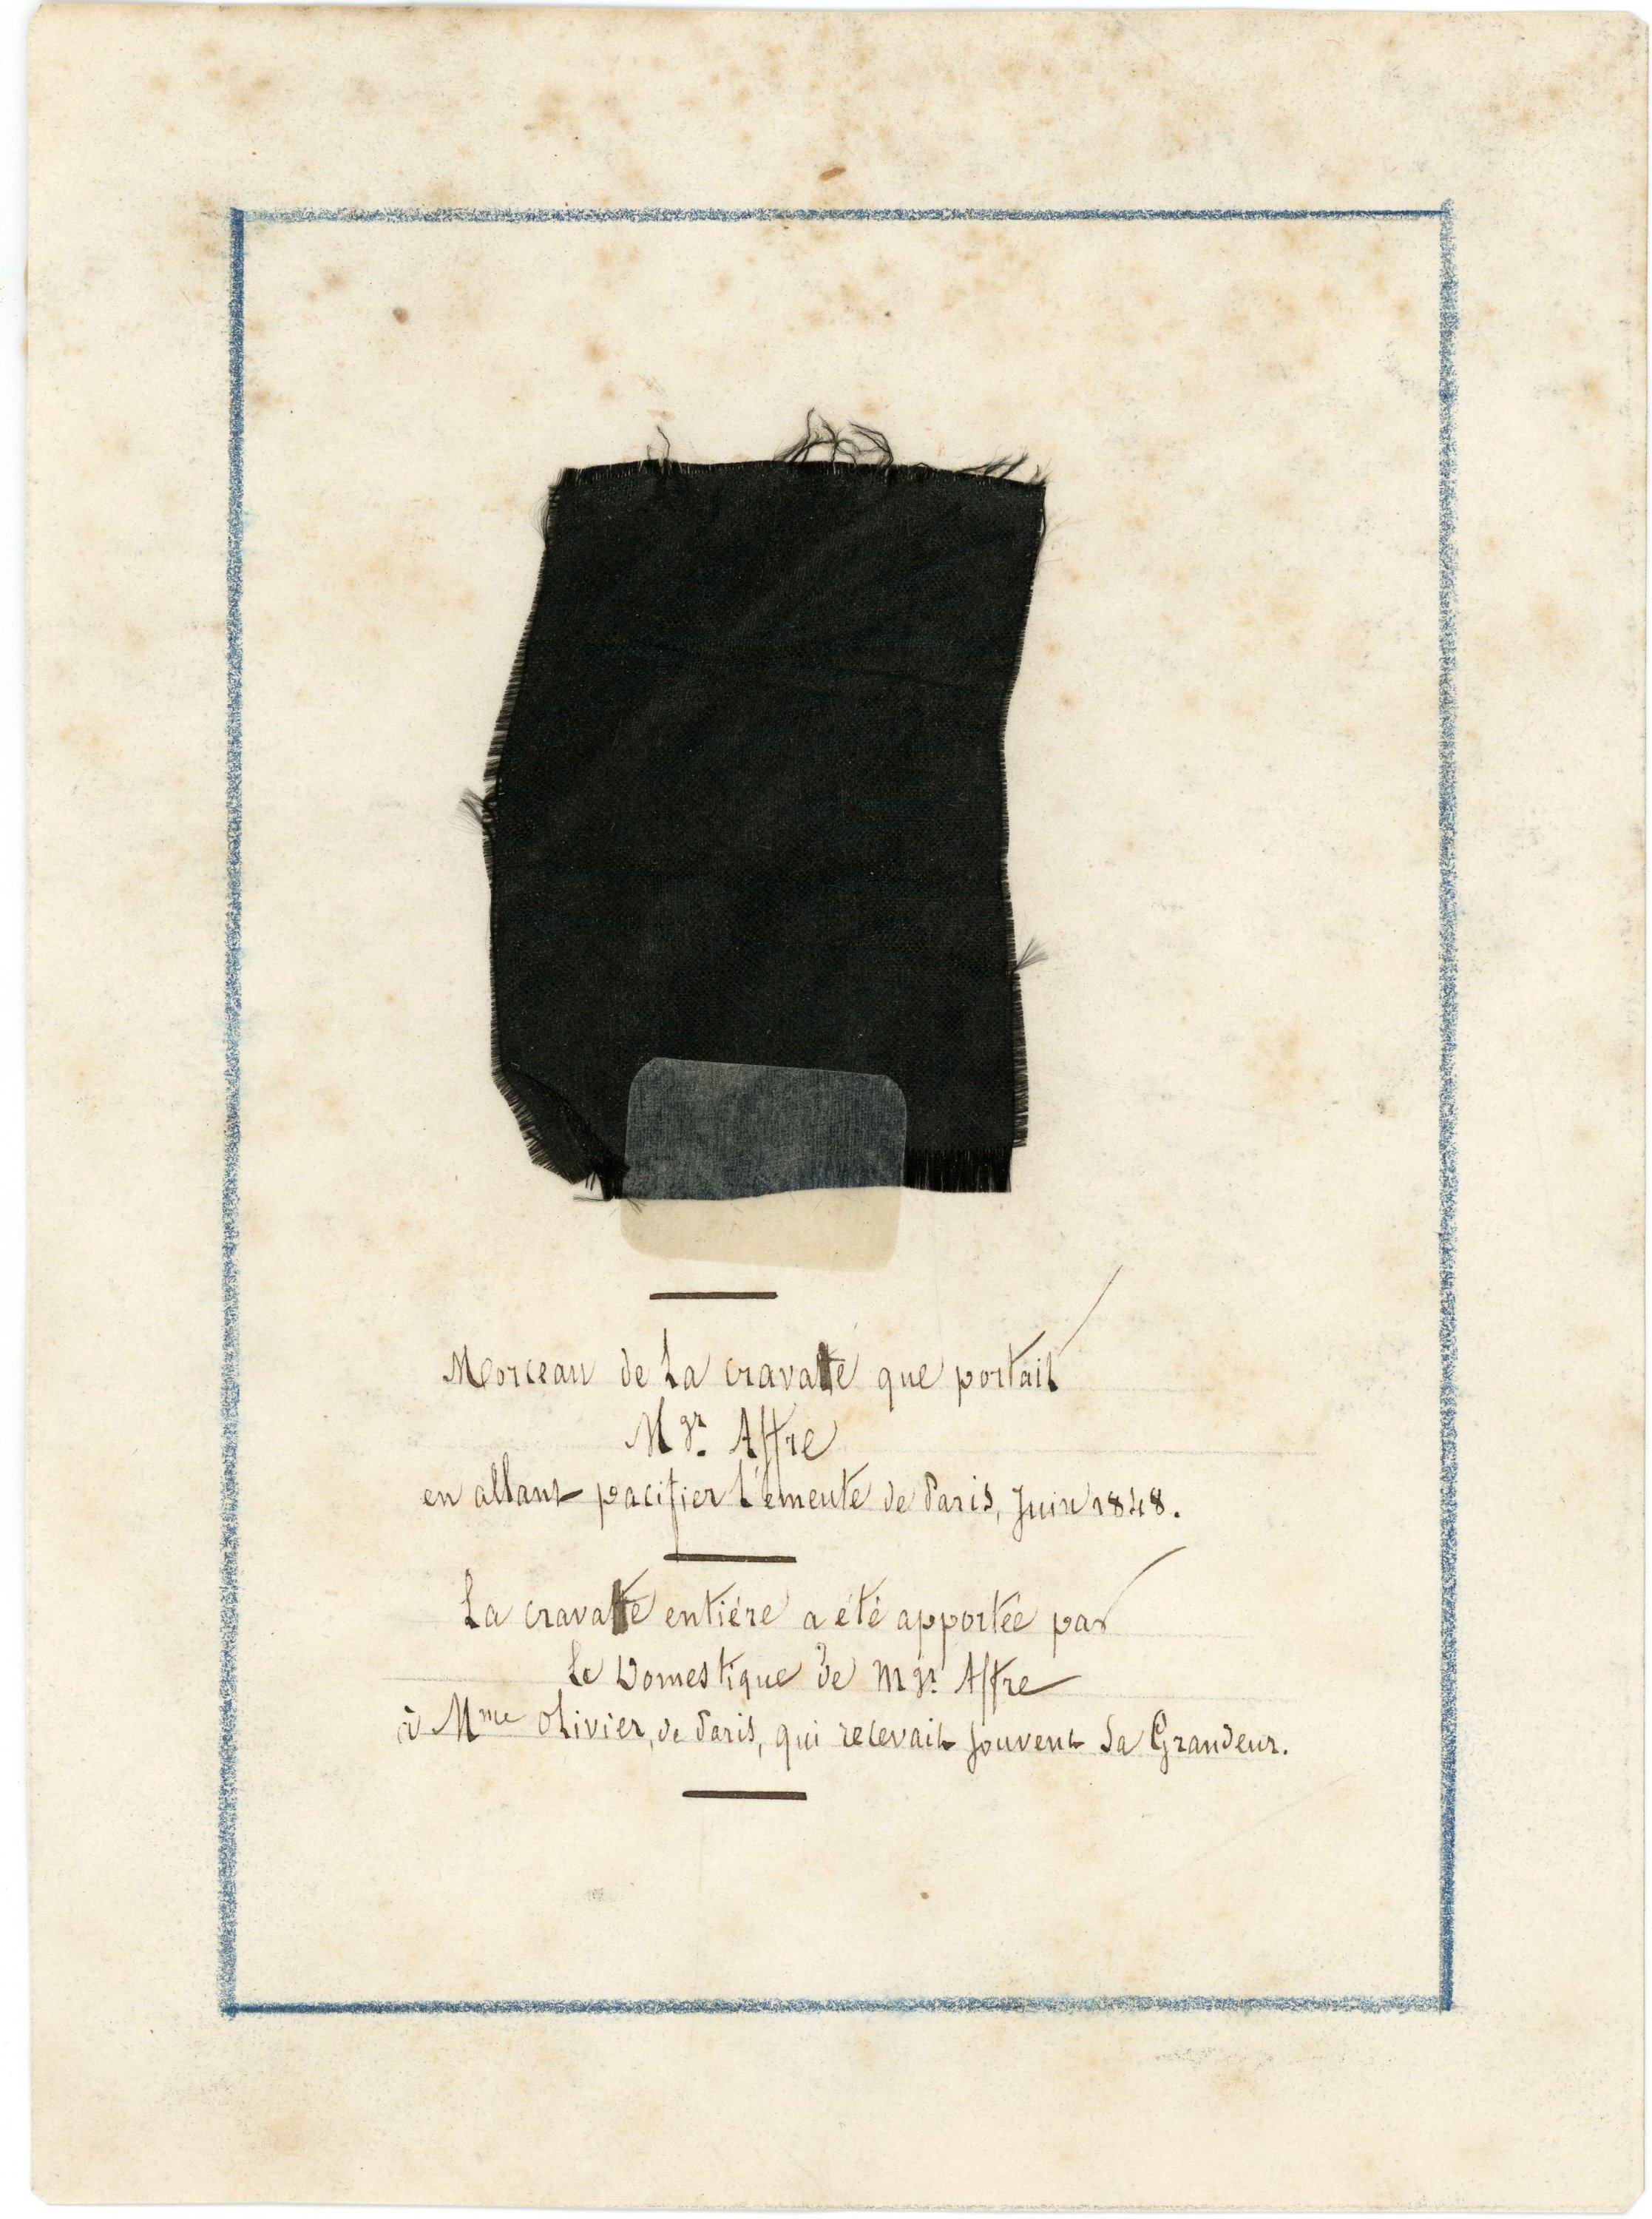 Morceau de La cravatte que portait
Mgr. Affre
en allant pacifier l'émeute de Paris, Juin 1848.
La cravatte entière a été apportée par
le Domestique de Mgr Affre
à Mme Olivier, de Paris, qui recevait souvent Sa Grandeur.